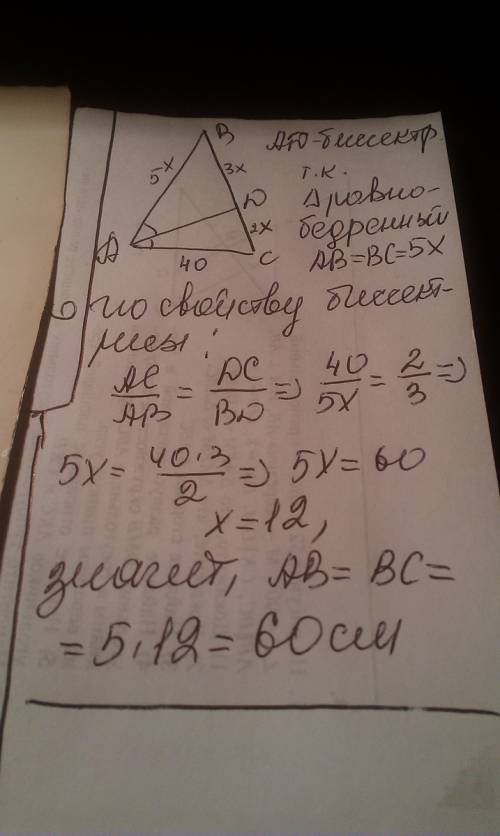 B
5x
3x
D
2x
A
40
C
AD-биссектр.
т.к.
Δ ровно-
бедренный
AB=BC=5x
по свойству биссект-
рисы:
AC/AB = DC/BD => 40/5x = 2/3 =>
5x = 40·3/2 => 5x = 60
x = 12,
значит, AB = BC =
= 5·12 = 60см